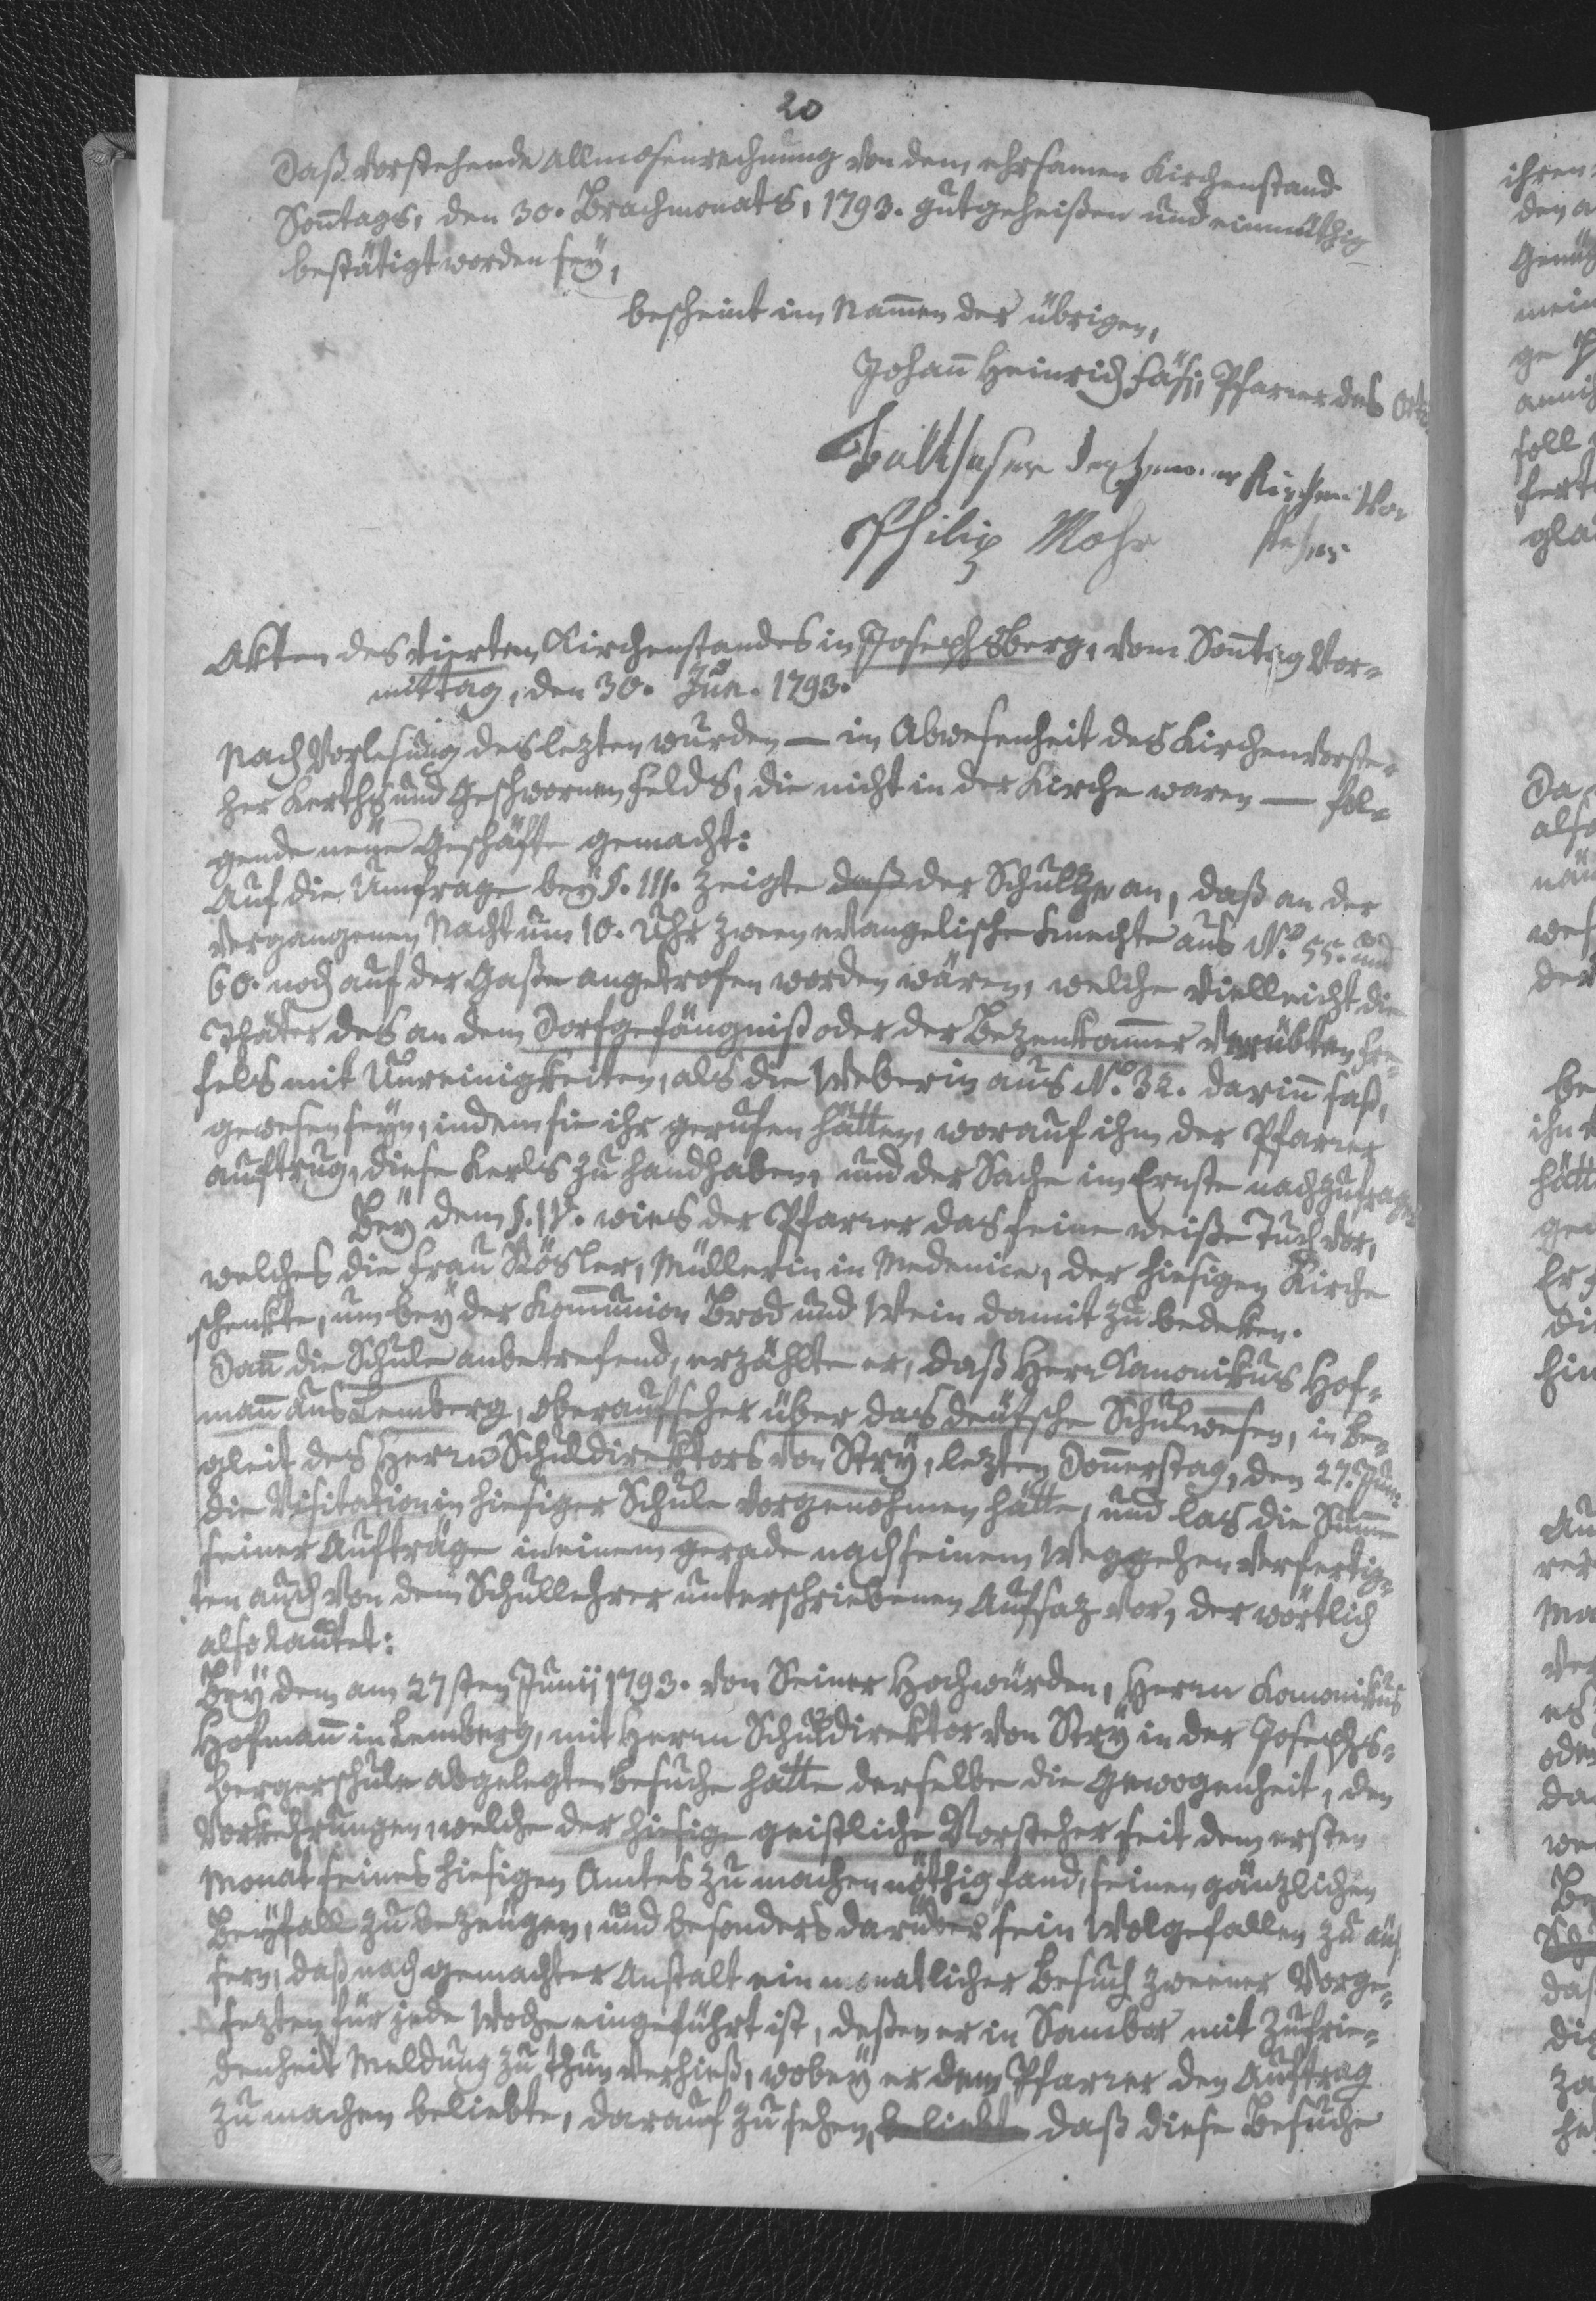 20
Daß vorstehende Allmosenrechnung von dem ehrsamen Kirchenstand
Soñtags, den 30. Brachmonats, 1793. gutgeheißen und einmüthig
bestätigt worden sey,
bescheint im Nam̄en der übrigen,
Johañ Heinrich Fäsi, Pfarrer des Orts.
Balthasar Kirchen Vor-
Philip Mohr steher
Akten des vierten Kirchenstandes in Josephsberg, vom Soñtag Vor-
mittag, den 30. Jun. 1793.
Nach Vorlesung des lezten wurden — in Abwesenheit des Kirchenvorste-
her Kerths und Geschwornen Felds, die nicht in der Kirche waren — fol-
gende neüe Geschäfte gemacht:
Auf die Umfrage bey §. III. zeigte daß der Schultze an, daß an der
vergangenen Nacht um 10. Uhr zween evangelische Knechte aus No. 55. und
60. noch auf der Gaße angetrofen worden wären, welche vielleicht die
Thäter des an dem Dorfgefängniß oder der Bezenkam̄er verübten Fre-
fels mit Unreinigkeiten, als die Weberin aus No. 32. dariñ saß,
gewesen seyn, indem sie ihr gerufen hätten, worauf ihm der Pfarrer
auftrug, diese Kerls zu handhaben, und der Sache im Ernste nachzufragen
Bey dem §. IV. wies der Pfarrer das feine weiße Tuch vor,
welches die Frau Rösler, Müllerin in Medenice, der hiesigen Kirche
schenkte, um bey der Kom̄union Brod und Wein damit zu bedeken.
Dañ die Schule anbetrefend, erzählte er, daß Herr Kanonikus Hof-
mañ aus Lemberg, Oberaufseher über das deutsche Schulwesen, in Be-
gleit des Herrn Schuldirektors von Stry, lezten Doñerstag, den 27. Jun.
die Visitation in hiesiger Schule vorgenohmen hätte, und las die Sum̄e
seiner Aufträge in einem gerade nach seinem Weggehen verfertig-
ten auch von dem Schullehrer unterschriebenen Aufsaz vor, der wörtlich
also lautet:
Bey dem am 27sten Junii 1793. von Seiner Hochwürden, Herrn Kanonikus
Hofmañ in Lemberg, mit Herrn Schuldirektor von Stry in der Josephs-
bergerschule abgelegten Besuche hatte derselbe die Gewogenheit, den
Vorkehrungen, welche der hiesige geistliche Vorsteher seit dem ersten
Monat seines hiesigen Amtes zu machen nöthig fand, seinen gänzlichen
Beyfall zu bezeugen, und besonders darüber sein Wolgefallen zu äus-
sern, daß nach gemachter Anstalt ein monatlicher Besuch zweener Vorge-
sezten für jede Woche eingeführt ist, deßen er in Sambor mit Zufrie-
denheit Meldung zu thun verhieß, wobey er dem Pfarrer den Auftrag
zu machen beliebte, darauf zu sehen, beliebte daß diese Besuche